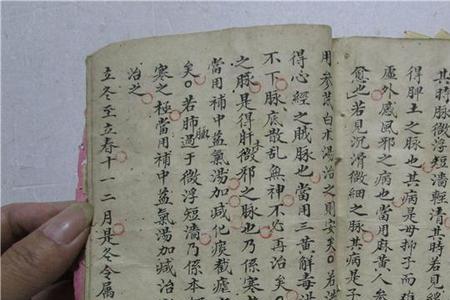 其時脉微浮短濇輕清其時若見
得脾土之脉也其病是母抑子而
虛外感風邪之病也當用麻黃人參
愈也若見沉滑微細之脉其病是子
用參芪白朮湯治之則安矣若洪
得心經之賊脉也當用三黃解毒
不下脉底散乱無神不必再治矣
之脉是得肝微邪之脉也乃係寒
當用補中益氣湯加减化痰截瘧
矣若肺脉過于微浮短濇乃係本
寒之極當用補中益氣湯加减治
治之
立冬至立春十一二月是冬令属